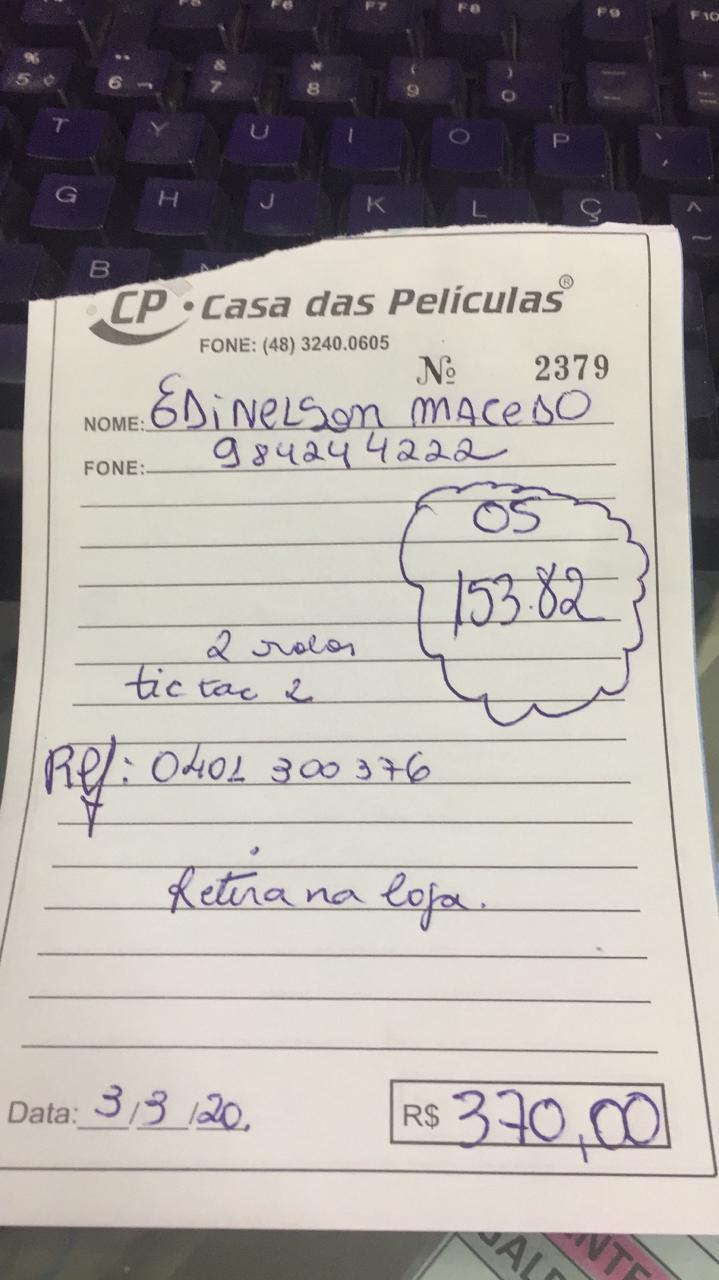 F6 F7 F8 F9 F10
% 5 ¢ ¨ 6 ¬ & 7 * 8 ( 9 ) 0
T Y U I O P
G H J K L Ç
B
CP · Casa das Películas®
FONE: (48) 3240.0605
Nº 2379
NOME: EDiNELSON MACEDO
FONE: 984244222
OS
153.82
2 rolos
tic tac 2
Ref: 0401 300376
Retira na loja.
Data: 3/3/20.
R$ 370,00